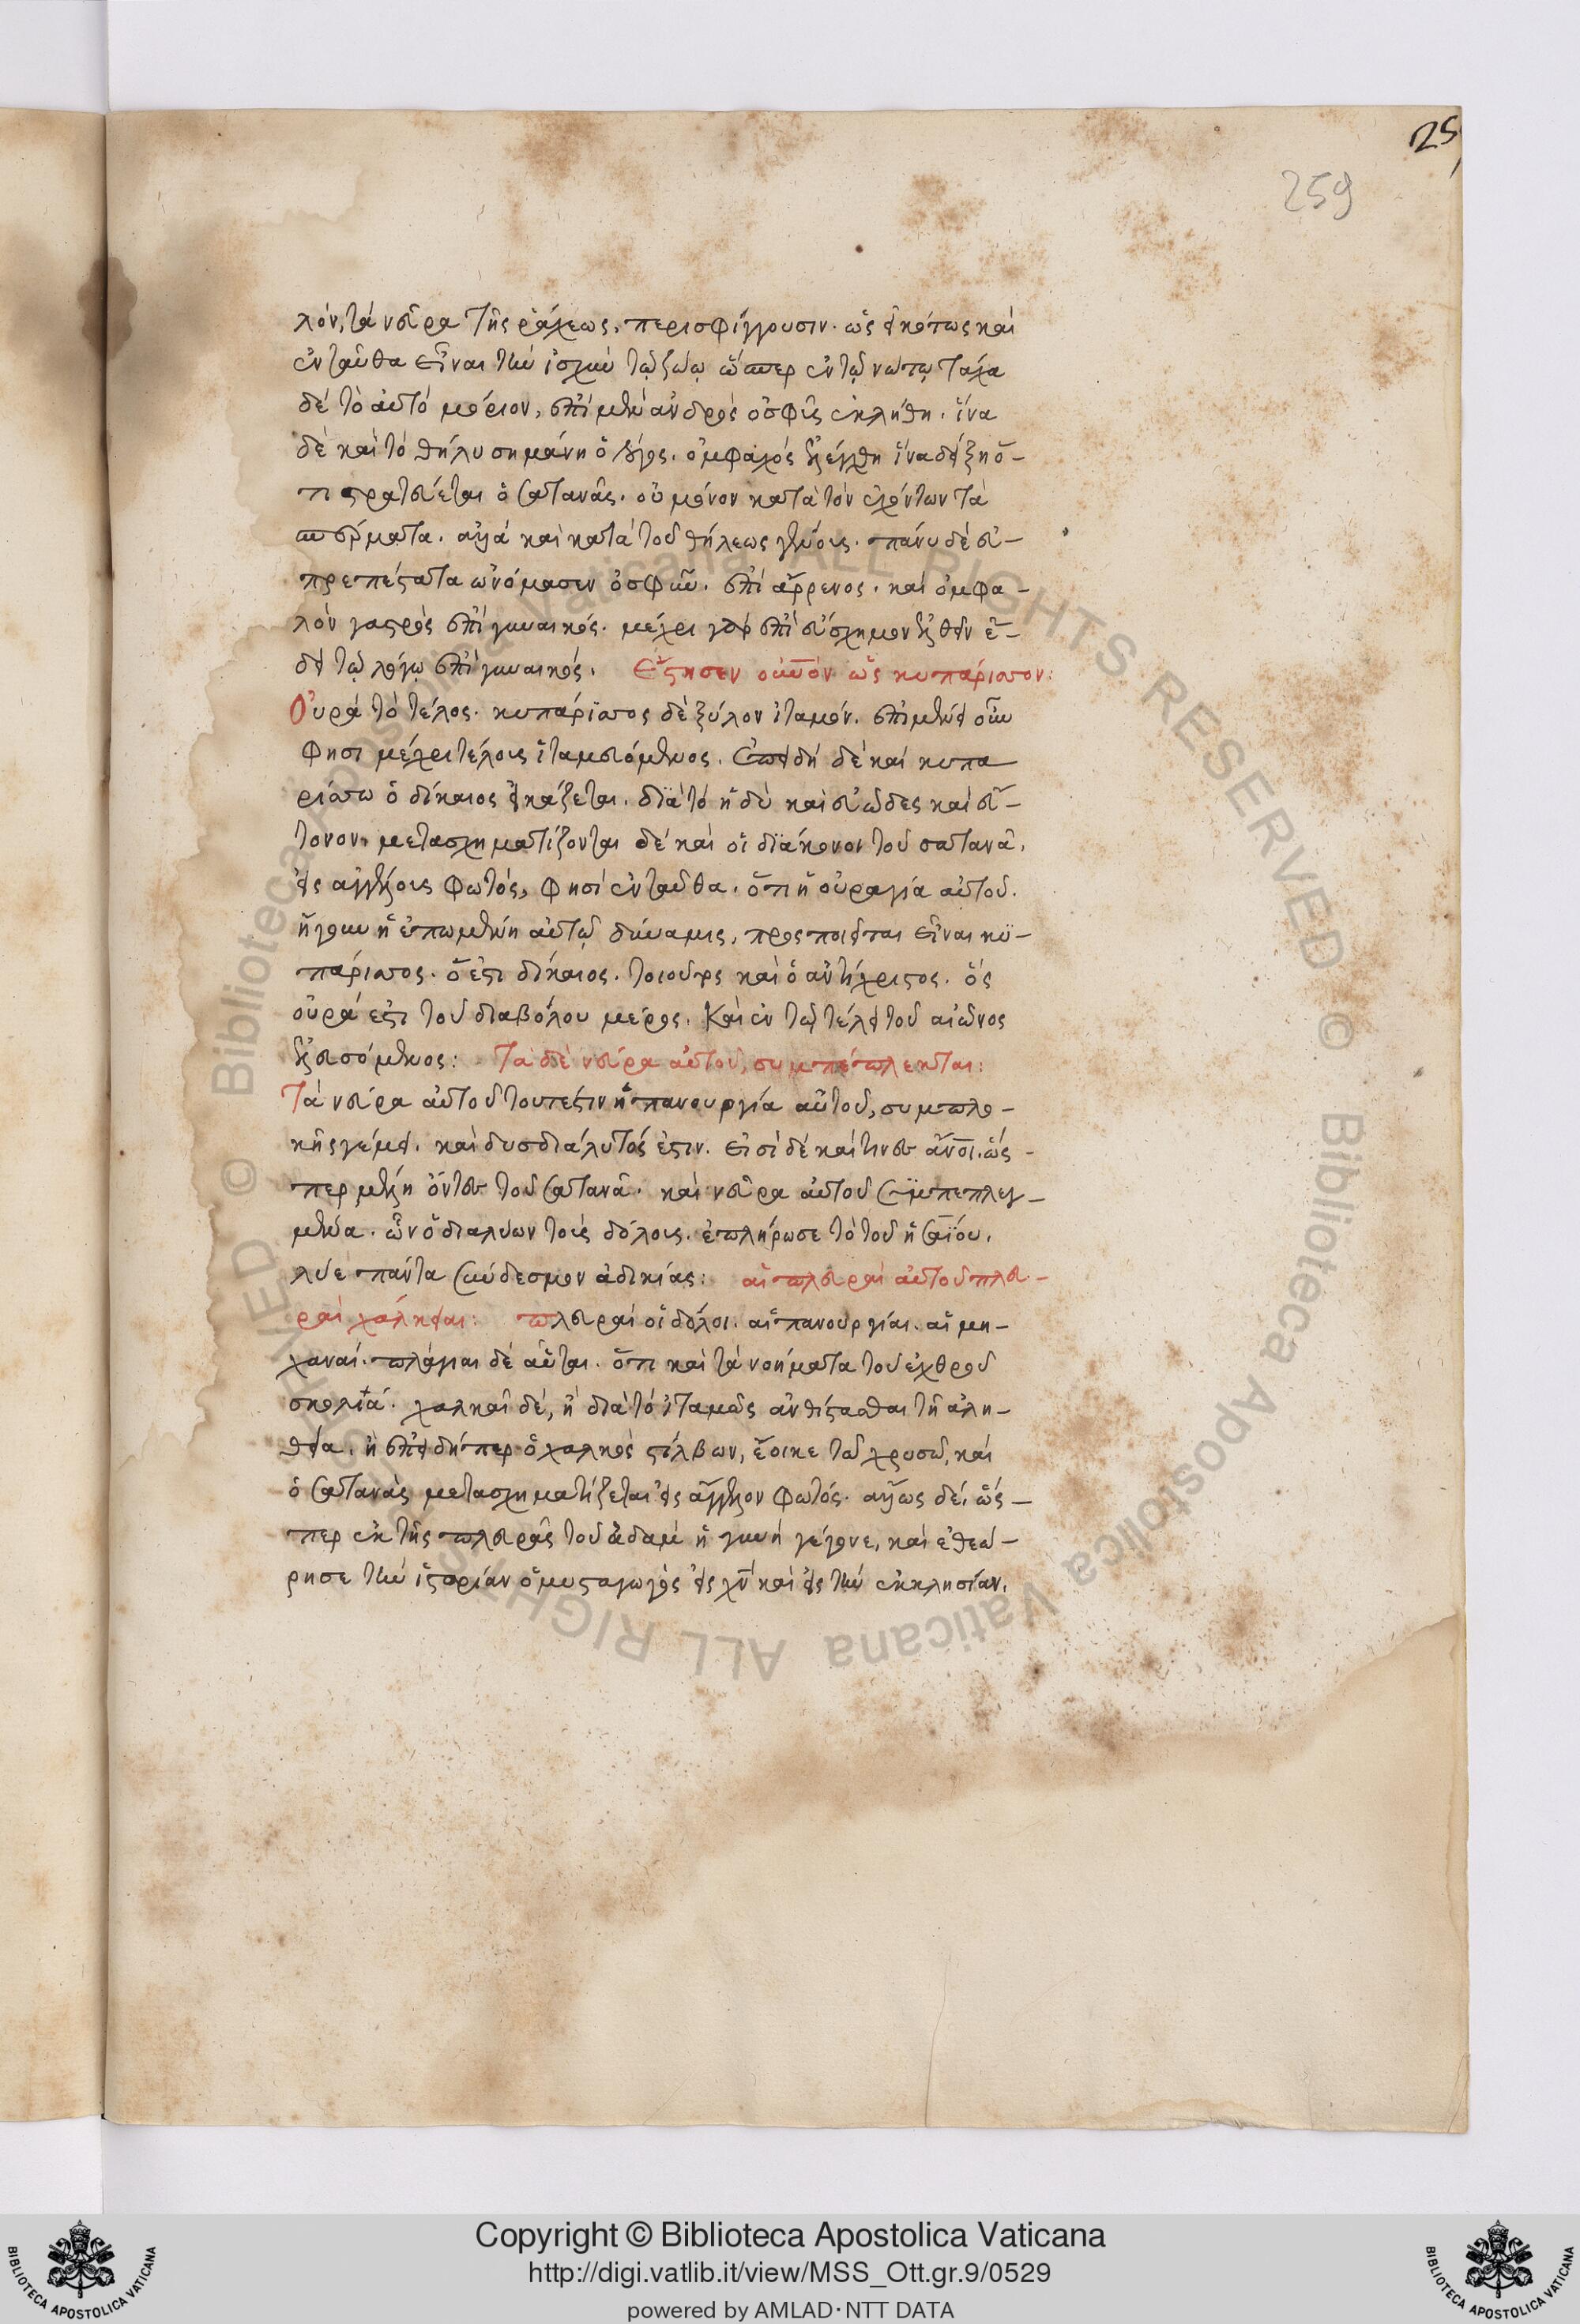 25
259
λόν, τὰ νεῦρα τῆς ῥάχεως, περισφίγγουσιν. ὡς εἰκότως καὶ
ἐνταῦθα εἶναι τὴν ἰσχὺν τῷ ζώῳ ὥσπερ ἐν τῷ νώτῳ τάχα
δὲ τὸ αὐτὸ μόριον, ἐπὶ μὲν ἀνδρὸς ὀσφῦς ἐκλήθη. ἵνα
δὲ καὶ τὸ θῆλυ σημάνη ὁ λόγος. ὀμφαλὸς ἐλέγχθη ἵνα δείξη ὅ-
τι στρατεύεται ὁ σατανᾶς. οὐ μόνον κατὰ τὸν ἐχόντων τὰ
σπέρματα. ἀλλὰ καὶ κατὰ τοῦ θήλεως γένους. πάνυ δὲ εὐ-
πρεπέστατα ὠνόμασεν ὀσφῦν. ἐπὶ ἄρρενος. καὶ ὀμφα-
λὸν γαστρὸς ἐπὶ γυναικός. μέχρι γὰρ ἐπὶ εὔσχημον ἐλθεῖν ἔ-
δει τῷ λόγῳ ἐπὶ γυναικός. Ἔστησεν οὐρὰν ὡς κυπάρισσον:
Οὐρὰ τὸ τέλος. κυπάρισσος δὲ ξύλον ἰταμόν. ἐπιμένει οὖν
φησι μέχρι τέλους ἰταμευόμενος. Ἐπειδὴ δὲ καὶ κυπα
ρίσσω ὁ δίκαιος εἰκάζεται. διὰ τὸ ἡδὺ καὶ εὐῶδες καὶ εὔ-
τονον. μετασχηματίζονται δὲ καὶ οἱ διάκονοι τοῦ σατανᾶ,
εἰς ἀγγέλους φωτός, φησὶ ἐνταῦθα. ὅτι ἡ οὐραγία αὐτοῦ.
ἤγουν ἡ ἑπομένη αὐτῷ δύναμις, προσποιεῖται εἶναι κυ-
πάρισσος. ὅ ἐστι δίκαιος. τοιοῦτος καὶ ὁ ἀντίχριστος. ὅς
οὐρά ἐστι τοῦ διαβόλου μέρος. Καὶ ἐν τῷ τέλει τοῦ αἰῶνος
ἐλευσόμενος: Τὰ δὲ νεῦρα αὐτοῦ, συμπέπλεκται:
Τὰ νεῦρα αὐτοῦ τουτέστιν ἡ πανουργία αὐτοῦ, συμπλο-
κῆς γέμει. καὶ δυσδιάλυτός ἐστιν. εἰσὶ δὲ καί τινες ἄνοι. ὥσ-
περ μέλη ὄντες τοῦ σατανᾶ. καὶ νεῦρα αὐτοῦ συμπεπλεγ-
μένα. ὧν ὁ διαλύων τοὺς δόλους. ἐπλήρωσε τὸ τοῦ ἡσαΐου.
λύε πάντα σύνδεσμον ἀδικίας: αἱ πλευραὶ αὐτοῦ πλευ-
ραὶ χάλκειαι: πλευραὶ οἱ δόλοι. αἱ πανουργίαι. αἱ μη-
χαναί. πλάγιαι δὲ αὗται. ὅτι καὶ τὰ νοήματα τοῦ ἐχθροῦ
σκολιά. χαλκαῖ δέ, ἢ διὰ τὸ ἰταμῶς ἀνθίστασθαι τῇ ἀλη-
θεία. ἢ ἐπειδήπερ ὁ χαλκὸς στίλβων, ἔοικε τῷ χρυσῷ, καὶ
ὁ σατανᾶς μετασχηματίζεται εἰς ἄγγελον φωτός. ἄλλως δέ, ὥσ-
περ ἐκ τῆς πλευρᾶς τοῦ ἀδὰμ ἡ γυνὴ γέγονε, καὶ ἐθεώ-
ρησε τὴν ἱστορίαν ὁ μυσταγωγὸς εἰς χν καὶ εἰς τὴν ἐκκλησίαν.
© Biblioteca Apostolica Vaticana ALL RIGHTS RESERVED © Biblioteca Apostolica Vaticana ALL RIGHTS RESERVED
Copyright © Biblioteca Apostolica Vaticana
http://digi.vatlib.it/view/MSS_Ott.gr.9/0529
powered by AMLAD·NTT DATA
BIBLIOTECA APOSTOLICA VATICANA
BIBLIOTECA APOSTOLICA VATICANA